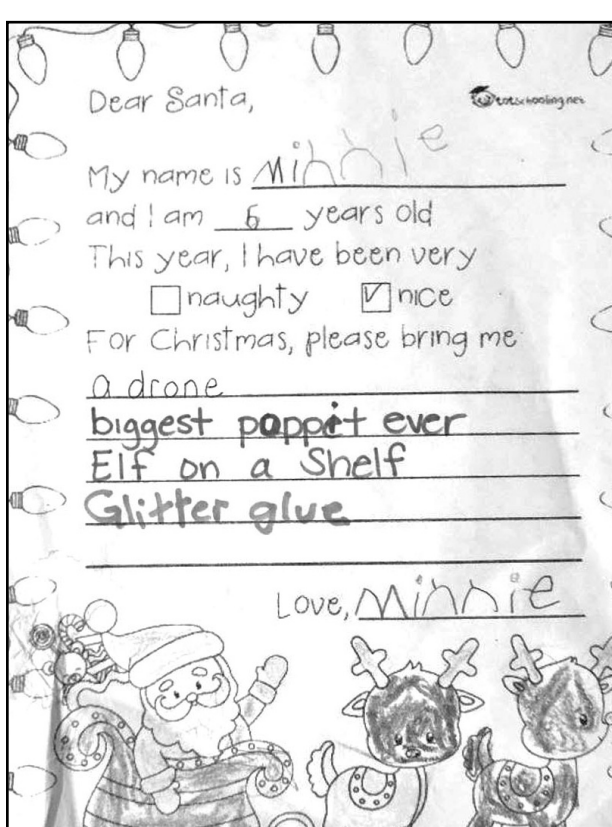 Dear Santa,
totschooling.net
My name is Minnie
and I am 6 years old
This year, I have been very
naughty nice
For Christmas, please bring me
a drone
biggest poppit ever
Elf on a Shelf
Glitter glue
Love, Minnie